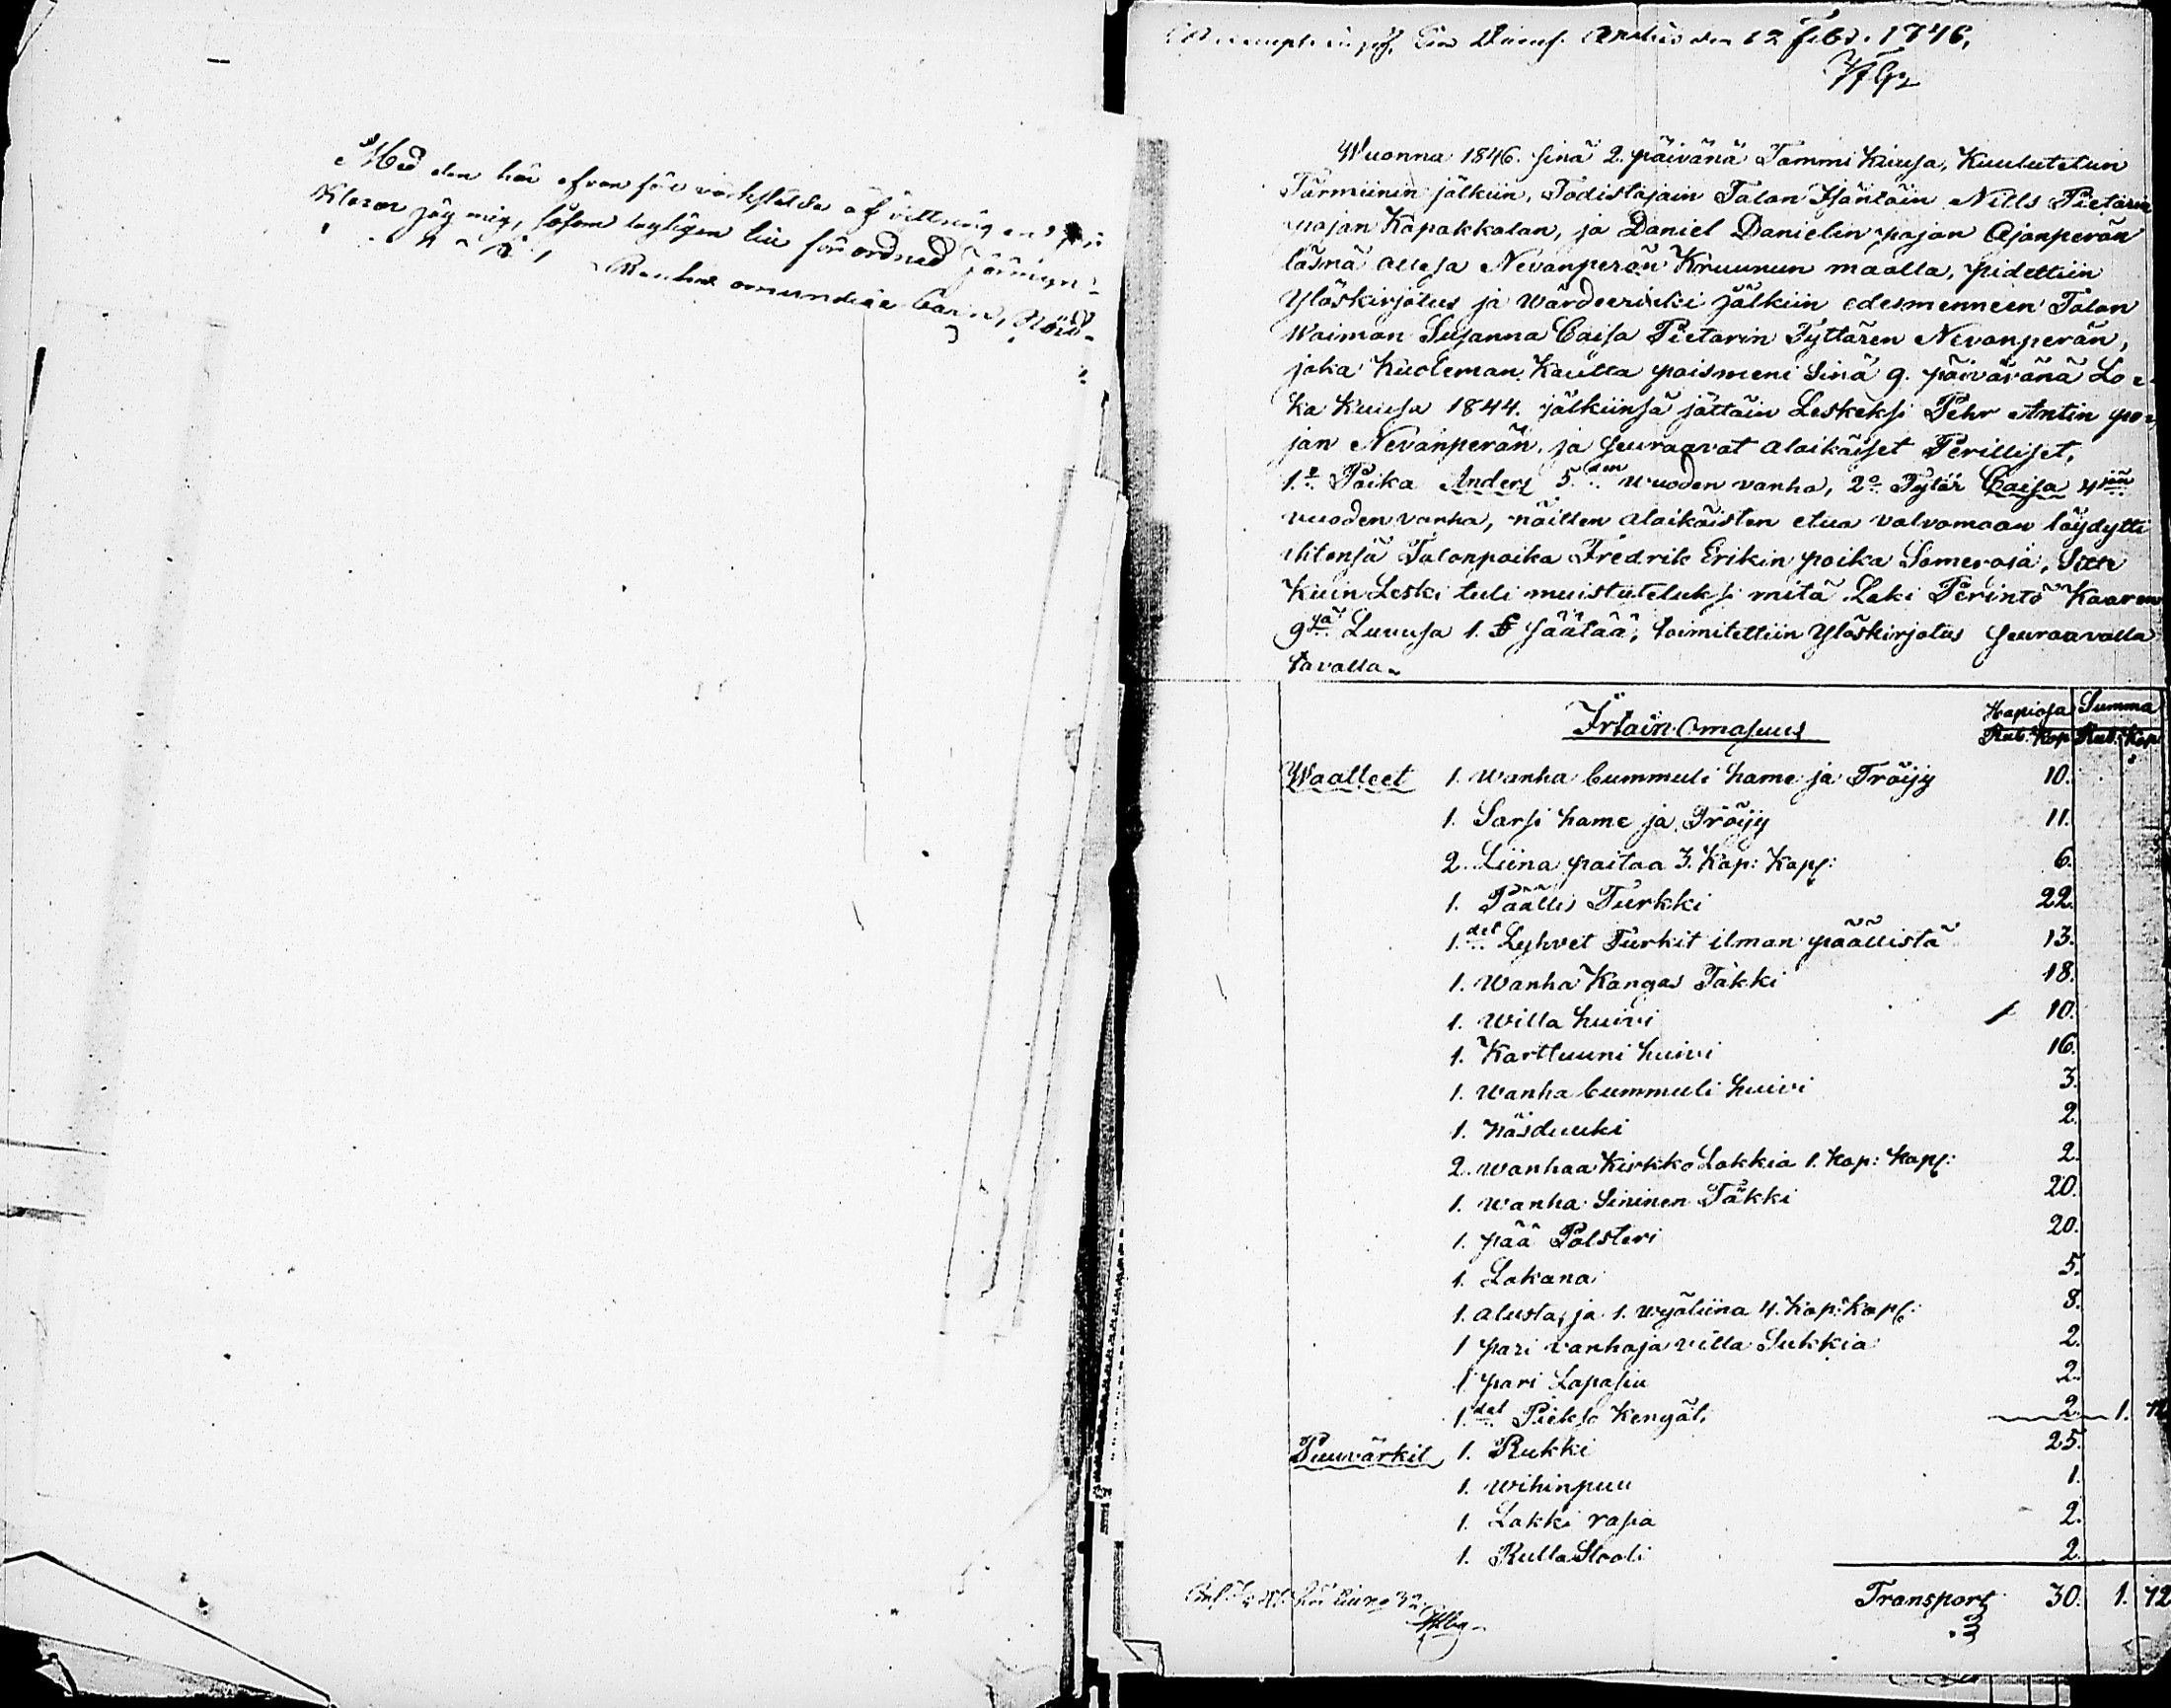 Med den här ofvan före verkstälde
Klarar jag mig, såsom lagligen här förordnad
12 Febr. 1846.
Wuonna 1846. sinä 2. päivänä Tammi Kuusa, Kuulutetun
Tärmiinin jälkiin, Todistajain Talon Isäntäin Nills Pietarin
pojan Kapakkalan, ja Daniel Danielin pojan Ajanperän
läsnä ollesa Nevanperän Kruunun maalla, pidettiin
Ylöskirjotus ja Wärdeerinki jälkiin edesmenneen Talon
Waiman Susanna Caisa Pietarin Tyttären Nevanperän,
joka Kuoleman Kautta poismeni Sinä 9. päivävänä Lo-
ka Kuusa 1844. jälkiinsä jättäin Leskeksi Pehr Antin po-
jan Nevanperän, ja seuraavat alaikäiset Perilliset,
1.o Poika Anders 5.den vuoden vanha, 2o Tytär Caisa 4jän
vuoden vanha, näitten alaikäisten etua valvomaan löydytti
ittensä Talonpoika Fredrik Erikin poika Someroja, Sitte
Kuin Leski tuli muistuteluksi mitä Laki Perintö Kaaren
9sä Luvusa 1. § säätää, toimitettiin Ylöskirjotus seuraavalla
tavalla.
Irtain Omasuus Hapiosa Summa
Rub. Kop Rub. Kop
Waatteet 1. Wanha Cummuli hame ja Tröijy 10.
1. Sarsi hame ja Tröijy 11.
2. Liina paitaa 3. Kop: Kapp: 6.
1. Päällis Turkki 22.
1. det Lyhvet Turkit ilman päällistä 13.
1. Wanha Kangas Täkki 18.
1. Willa huivi 10.
1. Karttuuni huivi 16.
1. Wanha Cummuli huivi 3.
1. Näsduuki 2.
2. Wanhaa Kirkko Lakkia 1. Kop: Kapp: 2.
1. Wanha Sininen Täkki 20.
1. pää Polsteri 20.
1. Lakana 5.
1. alusta, ja 1. Wyöliina 4. Kop: Kapp: 8.
1 pari vanhoja villa Sukkia 2.
1 pari Lapasia 2.
1. det Pieksu Kengät 2. 1. 72
Puuvärkit 1. Rukki 25.
1. Wihinpuu 1.
1. Lakki rasia 2.
1. Rulla Stooli 2.
Transport 30. 1. 72